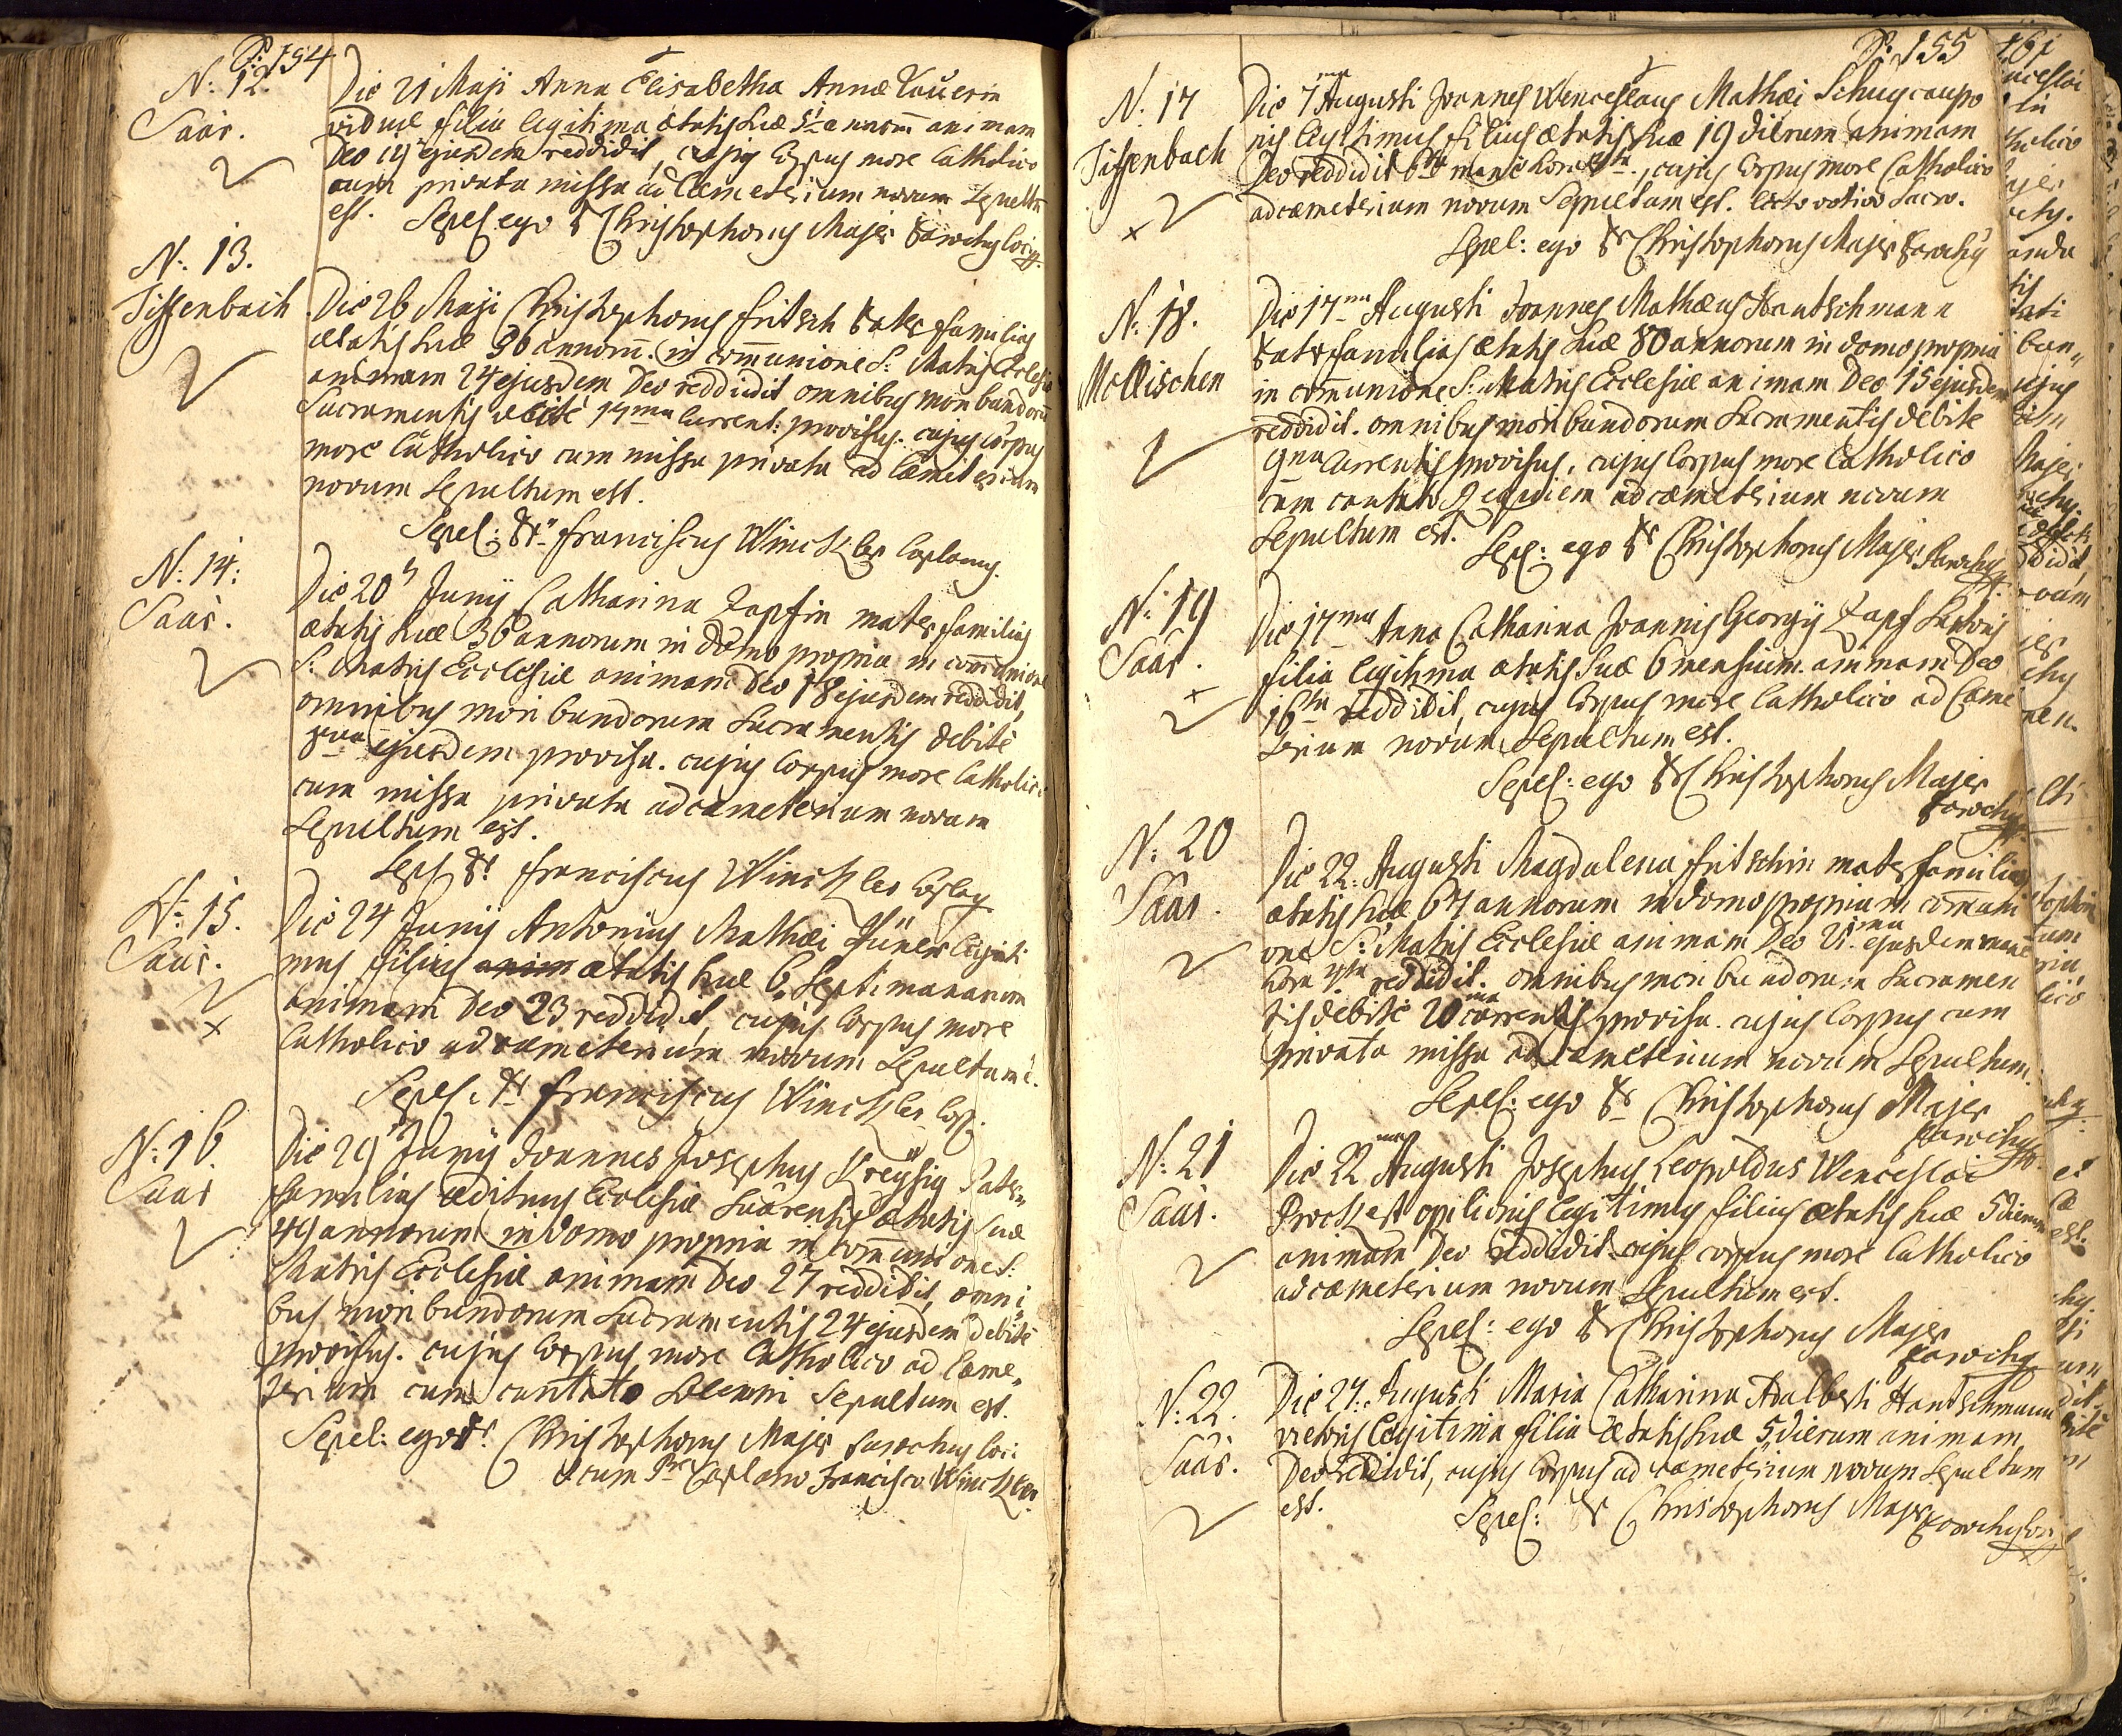 P: 154
N: 12.
Saar.
Die 21 Maji Anna Elisabetha Annæ
viduæ filia legitima ætatis suæ annorũ animam
Deo 19 ejusdem reddidit, cujus Corpus more Catholico
cum privata missa ad Cæmeterium novum Sepultũ
est. Sepel: ego P Christophorus Majer Parochus loci
N: 13.
Tissenbach
Die 26 Maji Christophorus Fritsch Pater familias
ætatis suæ 36 annorũ. in com̃unione S: Matris Ecclesiæ
animam 24 ejusdem Deo reddidit omnibus moribundorũ
Sacramentis debitè 17ma Current: provisus. cujus corpus
more Catholico cum missa privata ad Cæmiterium
novum Sepultum est.
Sepel: Pr Franciscus Winckler Caplanus.
N: 14:
Saar.
Die 20 Junij Catharina Zapfin mater familias
ætatis suæ 36 annorum in domo propria in com̃unione
S: Matris Ecclesiæ animam Deo 18 ejusdem reddidit,
omnibus moribundorum Sacramentis debitè
8va ejusdem provisa. cujus Corpus more Catholico
cum missa privata ad cæmeterium novum
Sepultum est.
Sepel Pr Franciscus Winckler Caplanus
N: 15.
Saar.
Die 24 Junij Antonius Mathæi legiti
mus filius ætatis suæ 6 Septimanarum
animam Deo 23 reddidit, cujus Corpus more
Catholico ad cæmeterium novum Sepultum ẽ.
Sepel: Pr Franciscus Winckler Capl.
N: 16.
Saar
Die 29 Junij Joannes Josephus Kreysig Pater
familias ædituus Ecclesiæ Saarensis ætatis suæ
49 annorum in domo propria in com̃unione S:
Matris Ecclesiæ animam Deo 27 reddidit, omni
bus moribundorum Sacramentis 24 ejusdem debitè
provisus. cujus Corpus more Catholico ad Cæme
terium cum cantato solenni Sepultum est.
Sepel: ego Pr. Christophorus Majer Parochus loci
cum Caplano Francisco Winckler
P: 155
N: 17
Tissenbach
Die 7ma Augusti Joannes Wenceslaus Mathæi Schug caupo
nis legitimus filius ætatis suæ 19 dierum animam
Deo reddidit 6ta mane hora, cujus Corpus more Catholico
ad cæmeterium novum Sepultum est. lecto votivo Sacro.
Sepel: ego Pr Christophorus Majer Parochus
N: 18.
Mollischen
Die 17ma Augusti Joannes Mathæus Hantschmann
Pater familias ætatis suæ 80 annorum in domo propria
in com̃unione S: Matris Ecclesiæ animam Deo 15 ejusdem
reddidit. omnibus moribundorum Sacramentis debite
9na Currentis provisus, cujus Corpus more Catholico
cum cantato Requiem ad cæmeterium novum
Sepultum est. Sepel: ego Pr Christophorus Majer Parochus
N: 19
Saar.
Die 17ma Anna Catharina Joannis Georgij Zapf Sartoris
filia legitima ætatis suæ 6 mensium animam Deo
16ta reddidit, cujus Corpus more Catholico ad Cæme
terium novum Sepultum est.
Sepel: ego Pr Christophorus Majer
Parochus
N: 20
Saar.
Die 22: Augusti Magdalena Fritschin mater familias
ætatis suæ 67 annorum in domo propria in com̃uni
one S: Matris Ecclesiæ animam Deo 21ma ejusdem mane
hora reddidit. omnibus moribundorum Sacramen
tis debitè 20ma currentis provisa. cujus Corpus cum
privata missa ad cæmeterium novum Sepultum.
Sepel: ego Pr Christophorus Majer
Parochus
N: 21
Saar.
Die 22ma Augusti Josephus Leopoldus Wenceslai
opilionis legitimus filius ætatis suæ 5 dierum
animam Deo reddidit cujus corpus more Catholico
ad cæmeterium novum Sepultum est.
Sepel: ego Pr Christophorus Majer
Parochus
N: 22.
Saar.
Die 27. Augusti Maria Catharina Adalberti Hantschmann
vietoris legitima filia ætatis suæ 5 dierum animam
Deo reddidit, cujus Corpus ad cameterium novum Sepultum
est. Sepel: Pr Christophorus Majer Parochus loci